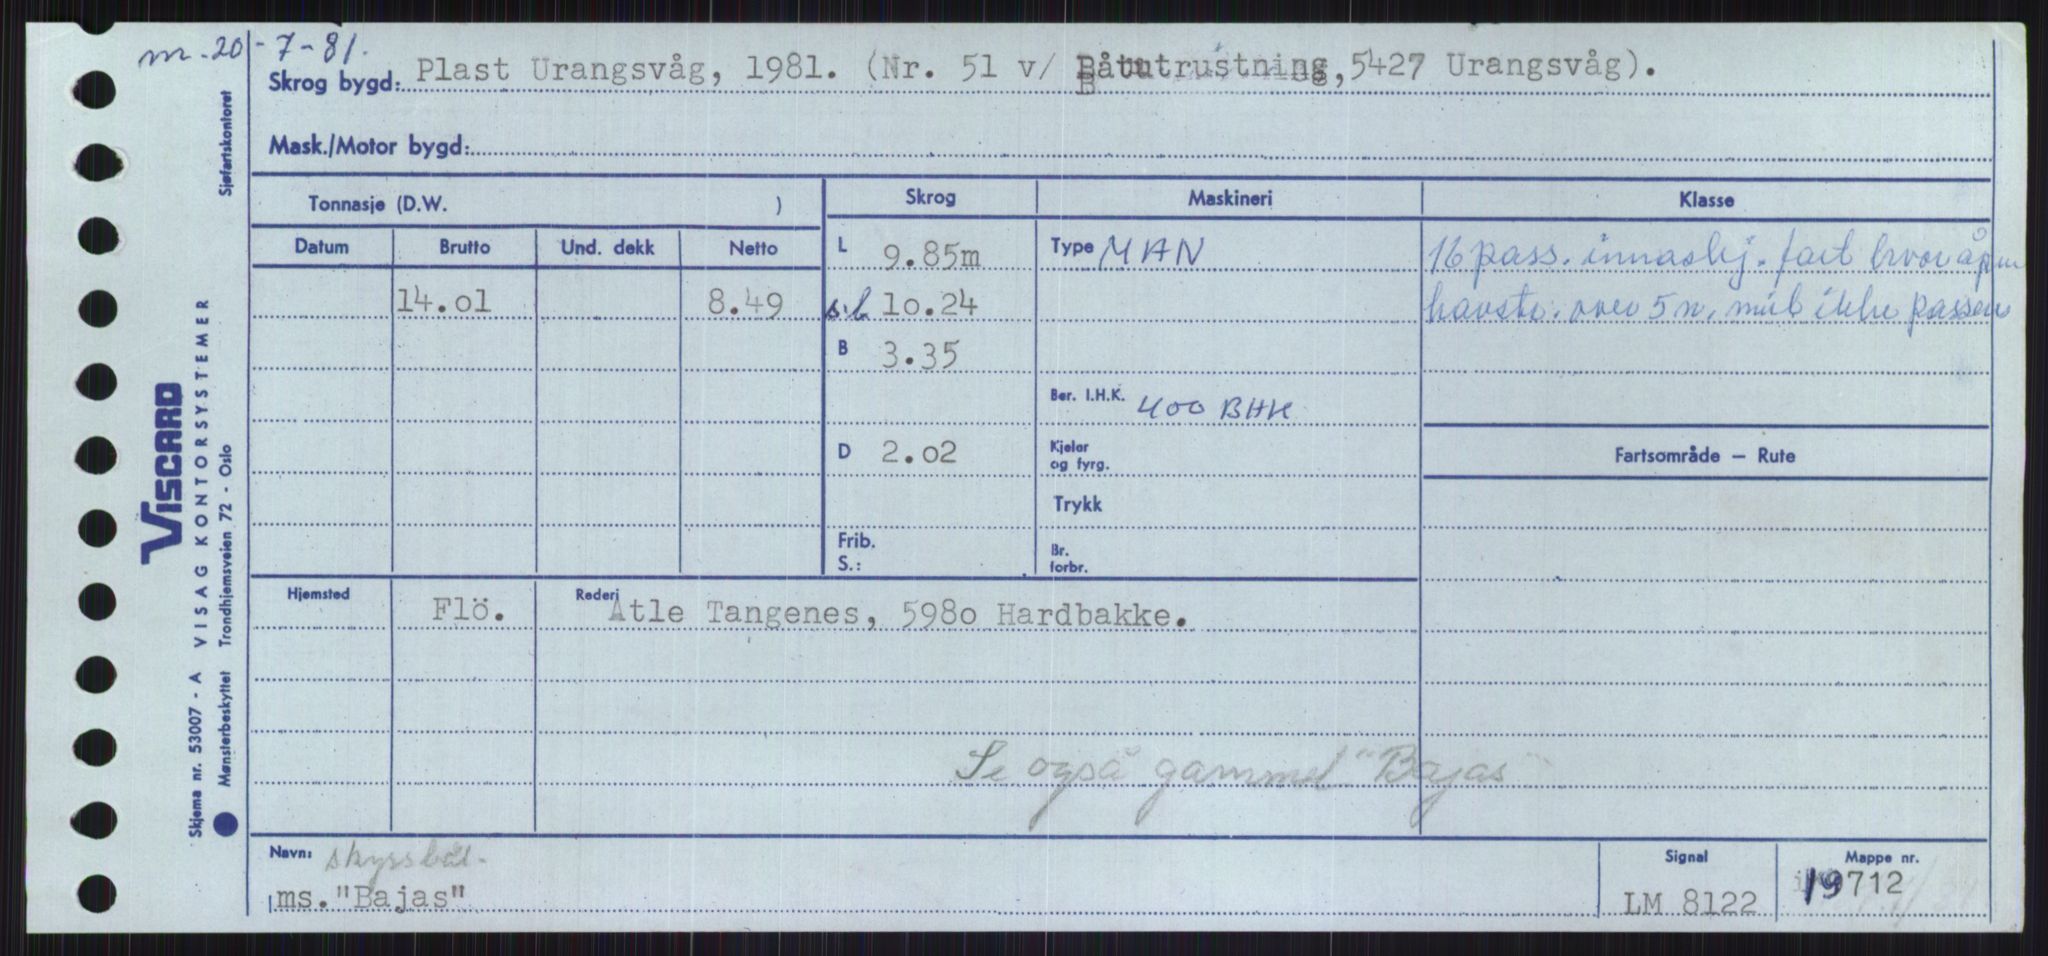 m. 20-7-81.
Skrog bygd: Plast Urangsvåg, 1981. (Nr. 51 v/ Båtutrustning, 5427 Urangsvåg).
Mask./Motor bygd:
Tonnasje (D.W. )
Skrog
Maskineri
Klasse
Datum
Brutto
Und. dekk
Netto
L 9.85m
Type MAN
16 pass. innaskj. fart hvor åpne
14.01
8.49
s.l. 10.24
havstr. over 5 n. mil ikke passeres
B 3.35
Ber. I.H.K. 400 BHK
D 2.02
Kjeler
og fyrg.
Fartsområde — Rute
Trykk
Frib.
S.:
Br.
forbr.
Hjemsted
Flö.
Rederi
Atle Tangenes, 5980 Hardbakke.
Se også gammel "Bajas"
Navn: skyssbåt.
ms. "Bajas"
Signal
LM 8122
Mappe nr.
19712
Sjøfartskontoret
VISCARD
Skjema nr. 53007 - A VISAG KONTORSYSTEMER
Mønsterbeskyttet Trondhjemsveien 72 - Oslo